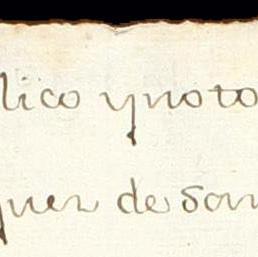 lico ynoto
quez de son